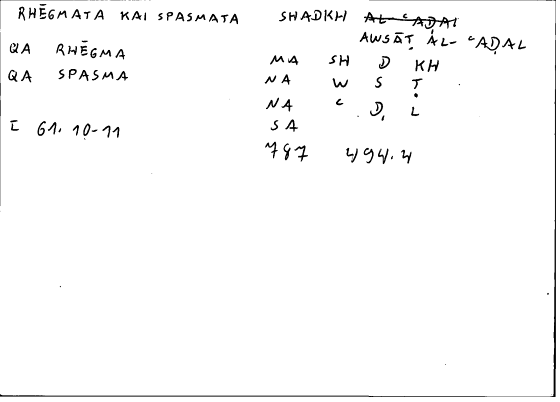 RHĒGMATA KAI SPASMATA SHADKH AL-ʿAḌAL
AWSĀṬ AL-ʿAḌAL
QA RHĒGMA
QA SPASMA
MA SH D KH
NA W S Ṭ
NA ʿ Ḍ L
SA
I 61.10-11
787 494.4